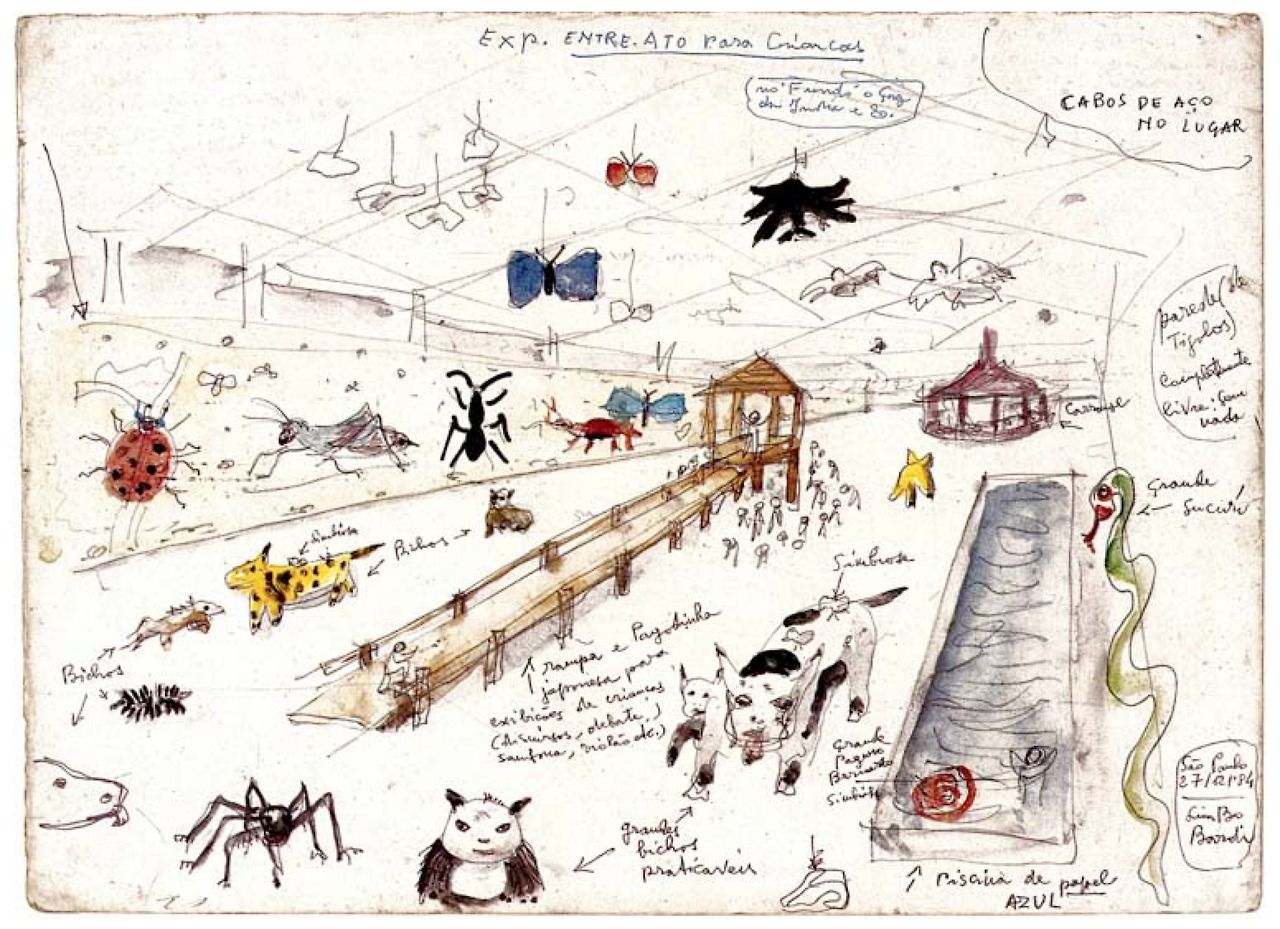 Exp. ENTRE.ATO Para Crianças
no "Fundo" o
da e
CABOS DE AÇO
NO LUGAR
parede (de
Tijolos)
Completamente
livre:
Carrousel
Grande
Sucurí
Bichos
Simbiose
Bichos
↑ rampa e Pagodinha
japonesa para
exibições de crianças
(discursos, debate,)
sanfona, violão etc.)
Grande
grandes
bichos
praticáveis
↑ Piscina de papel
AZUL
São Paulo
Lina Bo
Bardi